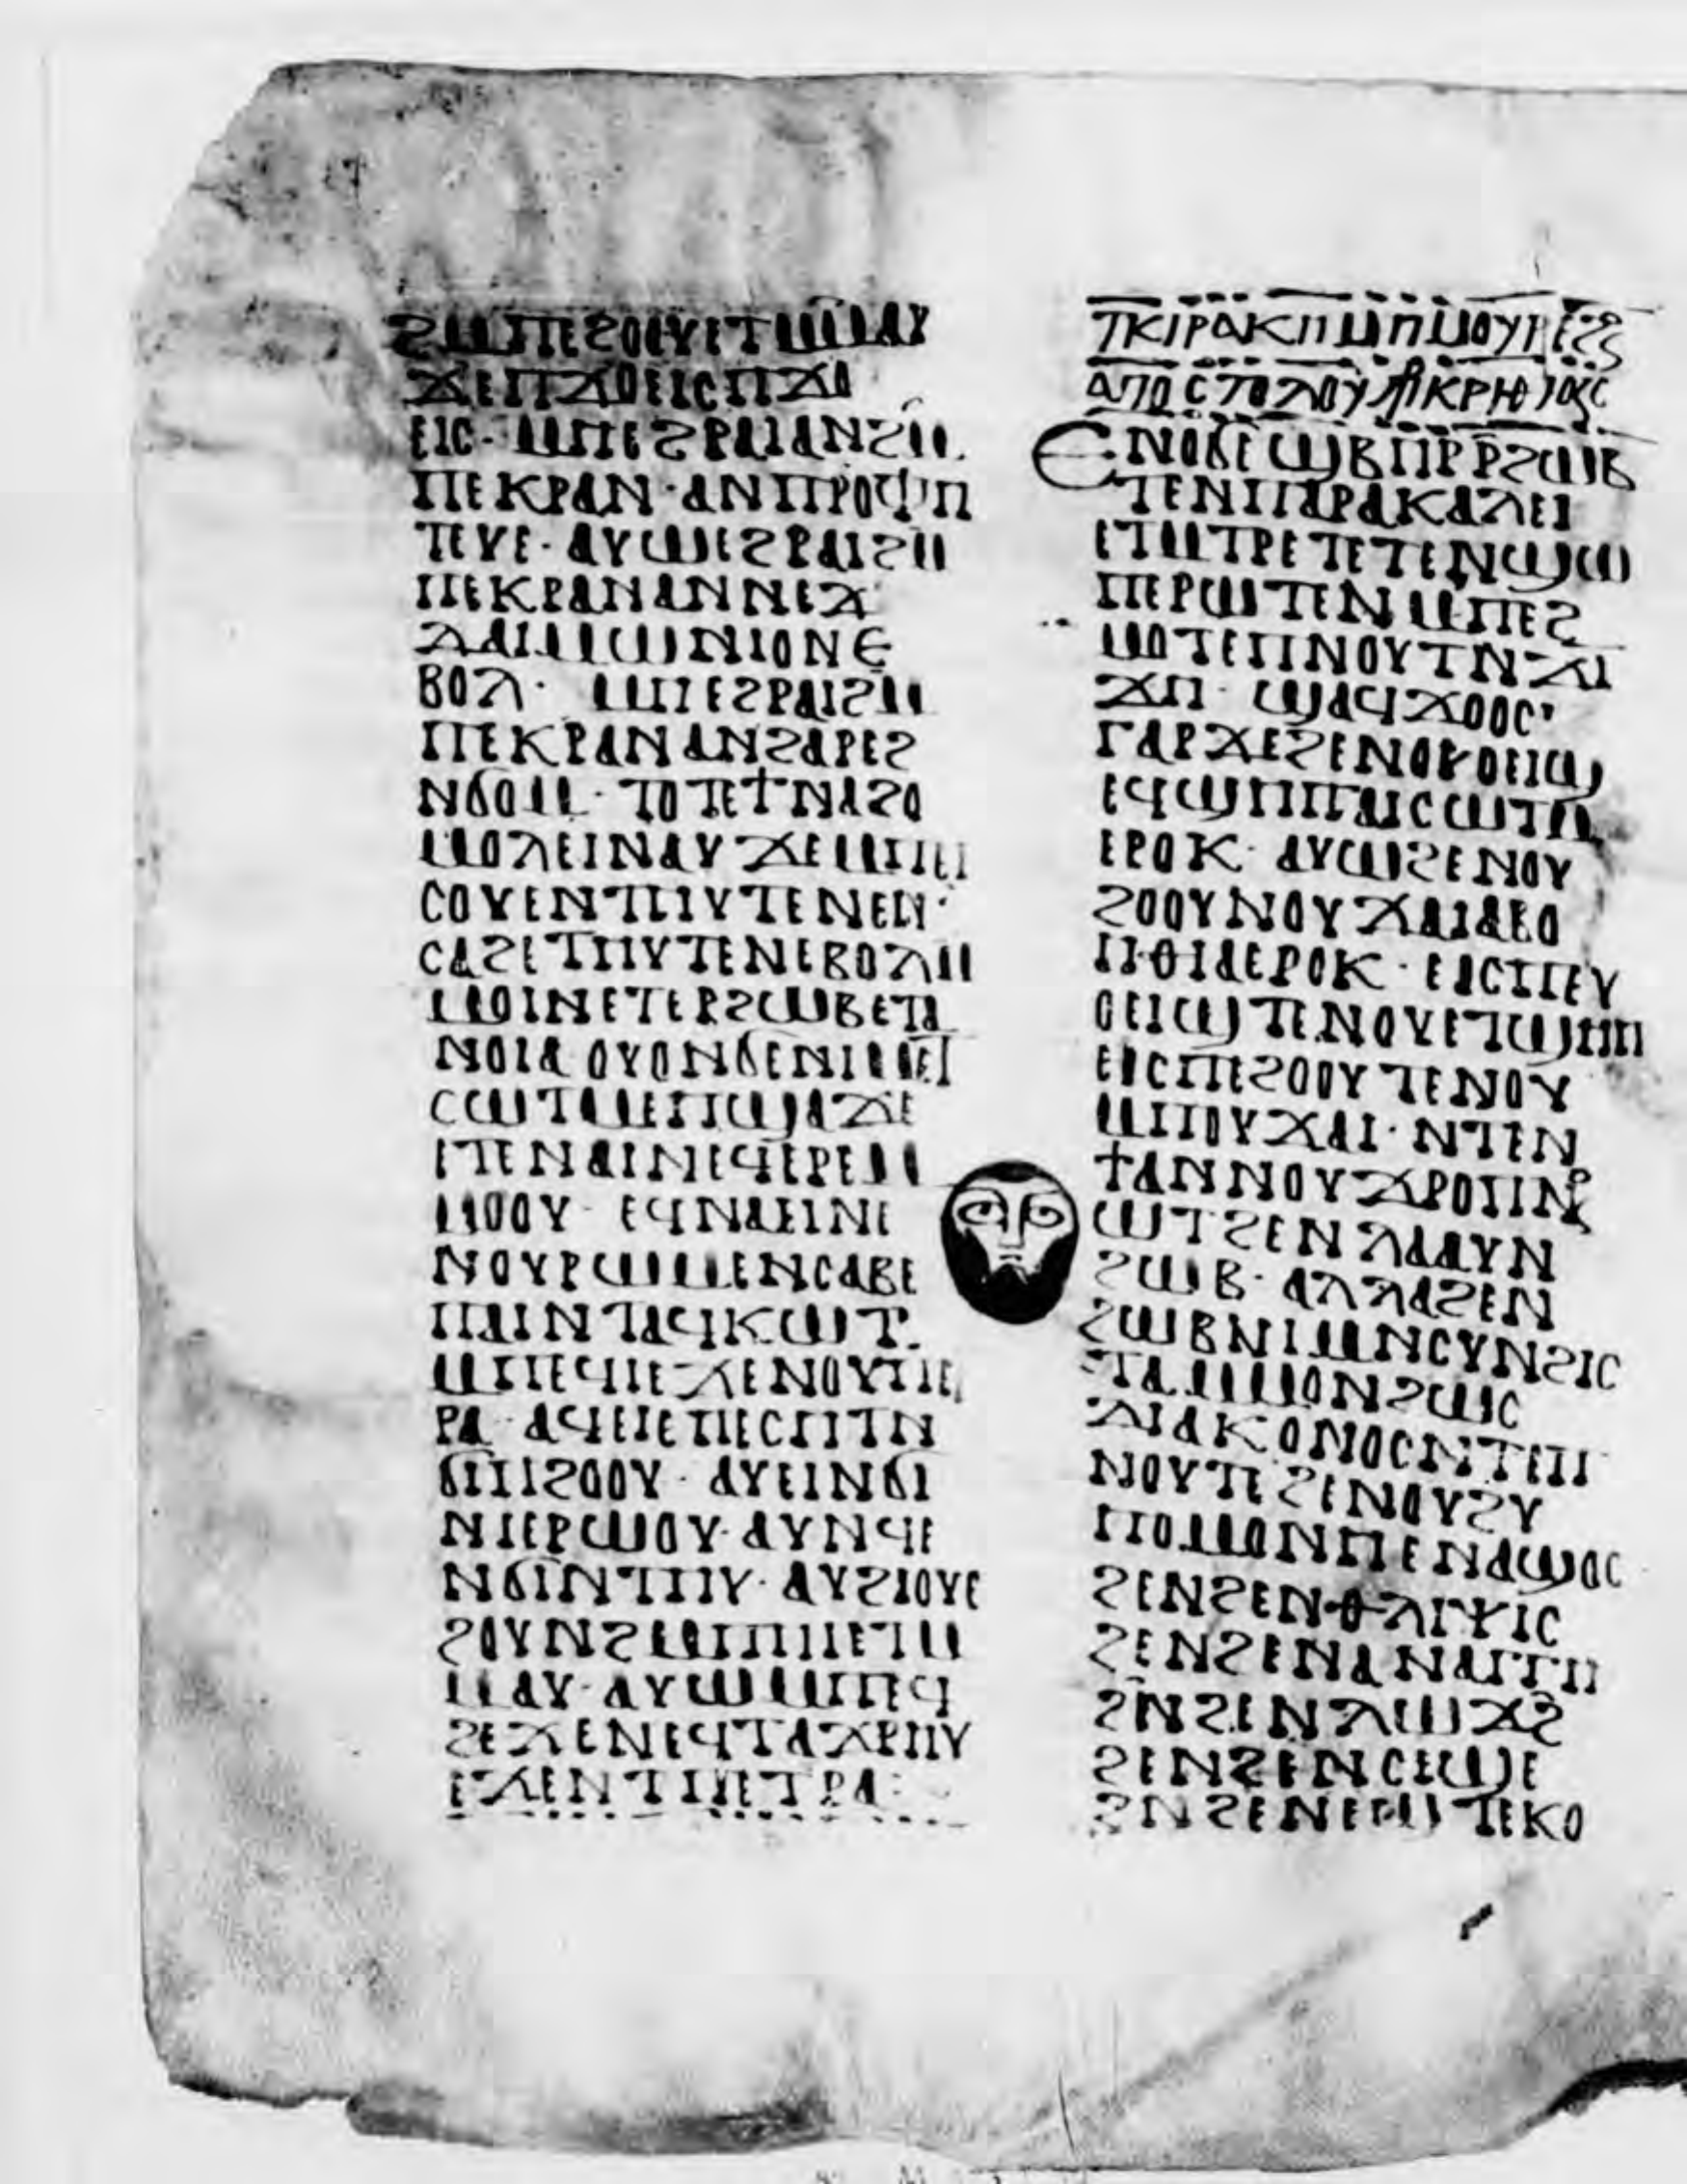 ϨⲘⲠⲈϨⲞⲞⲨⲈⲦⲘⲘⲀⲨ
ϪⲈⲠϪⲞⲈⲓⲤⲠϪⲞ
ⲈⲒⲤ· ⲘⲠⲈϨⲢⲀⲒⲀⲚϨⲘ
ⲠⲈⲔⲢⲀⲚ·ⲀⲚⲠⲢⲞⲪⲎ
ⲦⲈⲨⲈ· ⲀⲨⲰⲈϨⲢⲀⲒϨⲘ
ⲠⲈⲔⲢⲀⲚⲀⲚⲚⲈϪ
ⲆⲀⲒⲘⲰⲚⲒⲞⲚⲈ
ⲂⲞⲖ· ⲘⲠⲈϨⲢⲀⲒϨⲘ
ⲠⲈⲔⲢⲀⲚⲀⲚϨⲀⲢⲈϨ
ⲚϬⲞⲘ· ⲦⲞⲦⲈϮⲚⲀϨⲞ
ⲘⲞⲖⲈⲒⲚⲀⲨ ϪⲈⲘⲠⲈⲒ
ⲤⲞⲨⲈⲚⲦⲎⲨⲦⲈⲚⲈⲚⲈϨ·
ⲤⲀϨⲈⲦⲎⲨⲦⲈⲚⲈⲂⲞⲖⲘ
ⲘⲞⲒⲚⲈⲦⲈⲢϨⲰⲂⲈⲦⲀ
ⲚⲞⲒⲀ ⲞⲨⲞⲚϬⲈⲚⲒⲘⲈⲦ
ⲤⲰⲦⲘⲈⲠϢⲀϪⲈ
ⲈⲦⲈⲚⲀⲒⲚⲈϤⲈⲒⲢⲈⲘ
ⲘⲞⲞⲨ· ⲈϤⲚⲀⲈⲒⲚⲈ
ⲚⲞⲨⲢⲰⲘⲈⲚⲤⲀⲂⲈ
ⲠⲀⲒⲚⲦⲀϤⲔⲰⲦ
ⲘⲠⲈϤⲎⲒⲈϪⲈⲚⲞⲨⲠⲈⲦ
ⲢⲀ· ⲀϤⲈⲒⲈⲠⲈⲤⲎⲦⲚ
ϬⲒⲠϨⲞⲞⲨ· ⲀⲨⲈⲒⲚϬⲒ
ⲚⲒⲈⲢⲰⲞⲨ·ⲀⲨⲚⲒϤⲈ
ⲚϬⲒⲚⲦⲎⲨ·ⲀⲨϨⲒⲞⲨⲈ
ϨⲞⲨⲚϨⲘⲠⲎⲒⲈⲦⲘ
ⲘⲀⲨ·ⲀⲨⲰⲘⲠⲈϤ
ϨⲈϪⲈⲚⲈϤⲦⲀϪⲢⲎⲨ
ⲈϪⲈⲚⲦⲠⲈⲦⲢⲀ
ⲦⲔⲒⲢⲀⲔⲎ ⲘⲠⲘⲞⲨ
ⲀⲠⲞⲤⲦⲞⲖⲞⲨ
ⲈⲚⲞϬⲈϢⲂⲎⲢⲢϨⲰⲂ
ⲦⲈⲚⲠⲀⲢⲀⲔⲀⲖⲈⲒ
ⲈⲦⲘⲦⲢⲈⲦⲈⲦⲈⲚϢⲰ
ⲠⲈⲢⲰⲦⲈⲚⲘⲠⲈϨ
ⲘⲞⲦⲈⲠⲚⲞⲨⲦⲚϪⲒ
ϪⲎ· ϢⲀϤϪⲞⲞⲤ
ⲄⲀⲢϪⲈϨⲈⲚⲞⲨⲞⲈⲒϢ
ⲈϤϢⲎⲠⲀⲒⲤⲰⲦⲘ
ⲈⲢⲞⲔ· ⲀⲨⲰϨⲈⲚⲞⲨ
ϨⲞⲞⲨⲚⲞⲨϪⲀⲒⲀⲂⲞ
ⲎⲐⲒⲀⲈⲢⲞⲔ· ⲈⲒⲤⲠⲈⲨ
ⲞⲈⲒϢ ⲦⲈⲚⲞⲨⲈⲦϢⲎⲠ
ⲈⲒⲤⲠⲈϨⲞⲞⲨ ⲦⲈⲚⲞⲨ
ⲘⲠⲞⲨϪⲀⲒ· ⲚⲦⲈⲚ
ϮⲀⲚⲚⲞⲨϪⲢⲞⲠⲚϨ
ⲰⲦϨⲈⲚⲖⲀⲀⲨⲚ
ϨⲰⲂ· ⲀⲖⲖⲀϨⲈⲚ
ϨⲰⲂⲚⲒⲘⲚⲤⲨⲚϨⲒⲤ
ⲦⲀⲘⲘⲞⲚϨⲰⲤ
ⲆⲒⲀⲔⲞⲚⲞⲤⲚⲦⲈⲠ
ⲚⲞⲨⲦⲈϨⲈⲚⲞⲨϨⲨ
ⲠⲞⲘⲞⲚⲎⲈⲚⲀϢⲞⲤ
ϨⲈⲚϨⲈⲚⲐⲖⲒⲮⲒⲤ
ϨⲈⲚϨⲈⲚⲀⲚⲀⲄⲔⲎ
ϨⲚϨⲈⲚⲖⲰϪϨ
ϨⲈⲚϨⲈⲚⲤⲈϢⲈ
ϨⲚϨⲈⲚⲈϢⲦⲈⲔⲞ